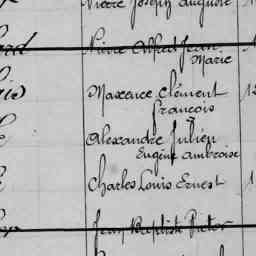 Pierre Joseph Auguste
Pierre Alfred Jean
Marie
Maxence Clément
François
Alexandre Julien
Eugène Ambroise
Charles Louis Ernest
Jean Baptiste Victor